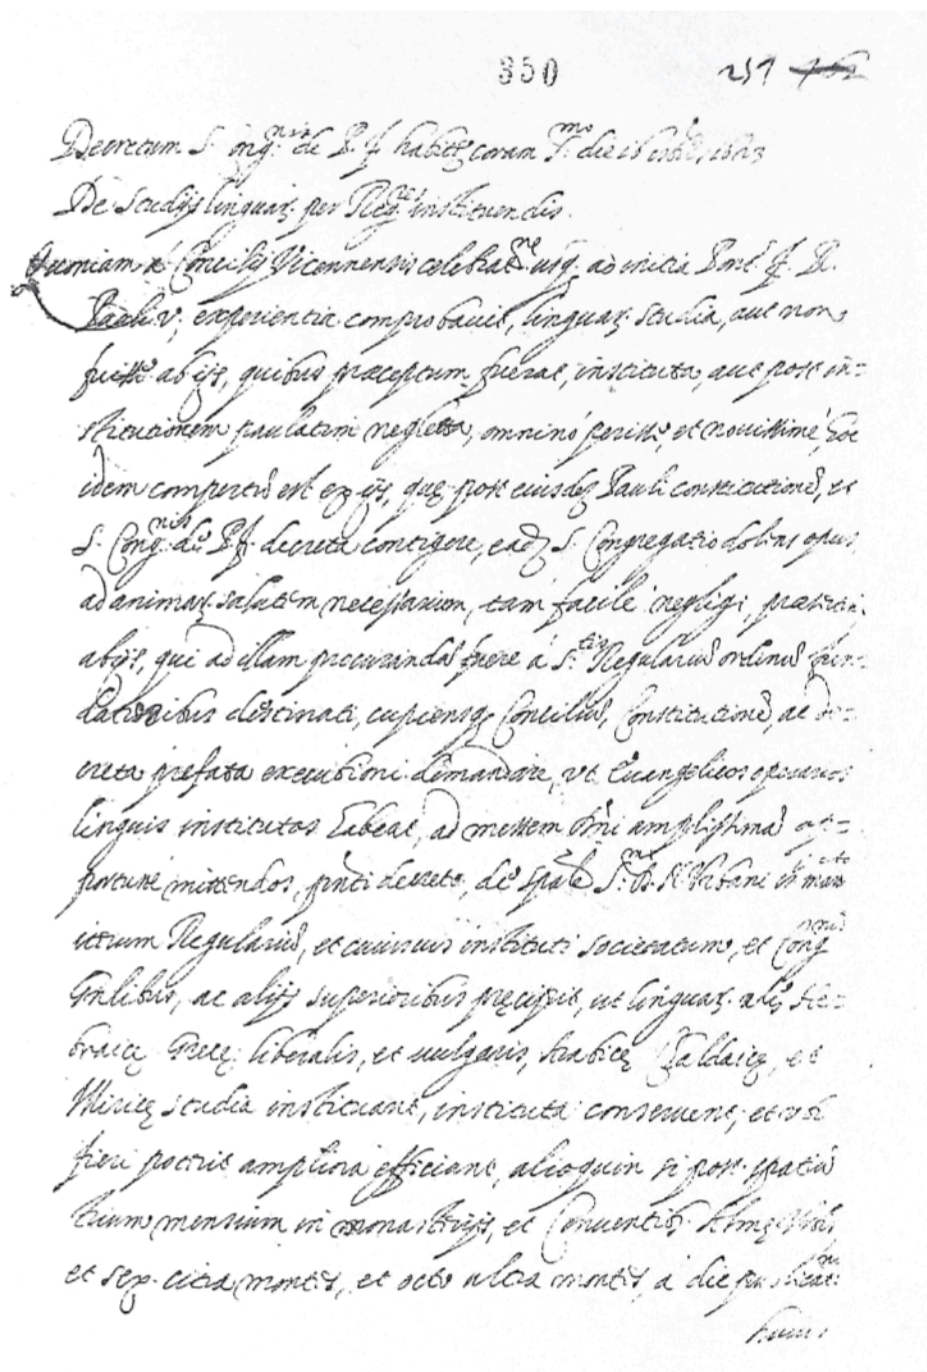 350 257
Decretum S. Cong.nis de P. F. habitę coram S.mo die 16 1623
De studijs linguar. per Reg.res instituendis.
Quoniam à Concilij Viennensis celebrat.ne usq. ad initia Pont. F. R.
Pauli V, experientia comprobavit, linguar. studia, aut non
fuisse ab ijs, quibus præceptum fuerat, instituta, aut post in=
stitutionem paulatim neglecta, omninò perisse, et novissimè hoc
idem compertũ est ex ijs, quę post eiusdẽ Pauli constitutionẽ, et
S. Cong.nis de P. F. decreta contigere, eadẽ S. Congregatio dolens opus
ad animar. salutem necessarium, tam facilè negligi, præsertim
ab ijs, qui ad illam procurandã fuere à S.tis Regulariũ ordinũ fun=
datoribus destinati, cupiensq. Conciliũ, Constitutionẽ, ac de=
creta prefata executioni demandare, ut Evangelicos operarios
linguis institutos habeat, ad messem Dñi amplissimã op=
portunè mittendos, pñti decreto, de spãli S.mi D. N. Urbani VIII man.to
Regulariũ, et cuiusvis instituti societatum, et Cong.num
Gñlibus, ac alijs superioribus pręcipit, ut linguar. He=
braicę Gręcę liberalis, et vulgaris, Arabicę Chaldaicę, et
Illiricę studia instituant, instituta conservent, et ubi
fieri poterit ampliora efficiant, alioquin si post spatiũ
trium mensium in monasterijs, et Conventib.
et sex citra montes, et octo ultra montes, à die publicat.nis